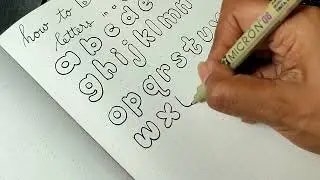 how to
letters
a b c d e
g h i j k l m n
o p q r s t u
w x
MICRON 08